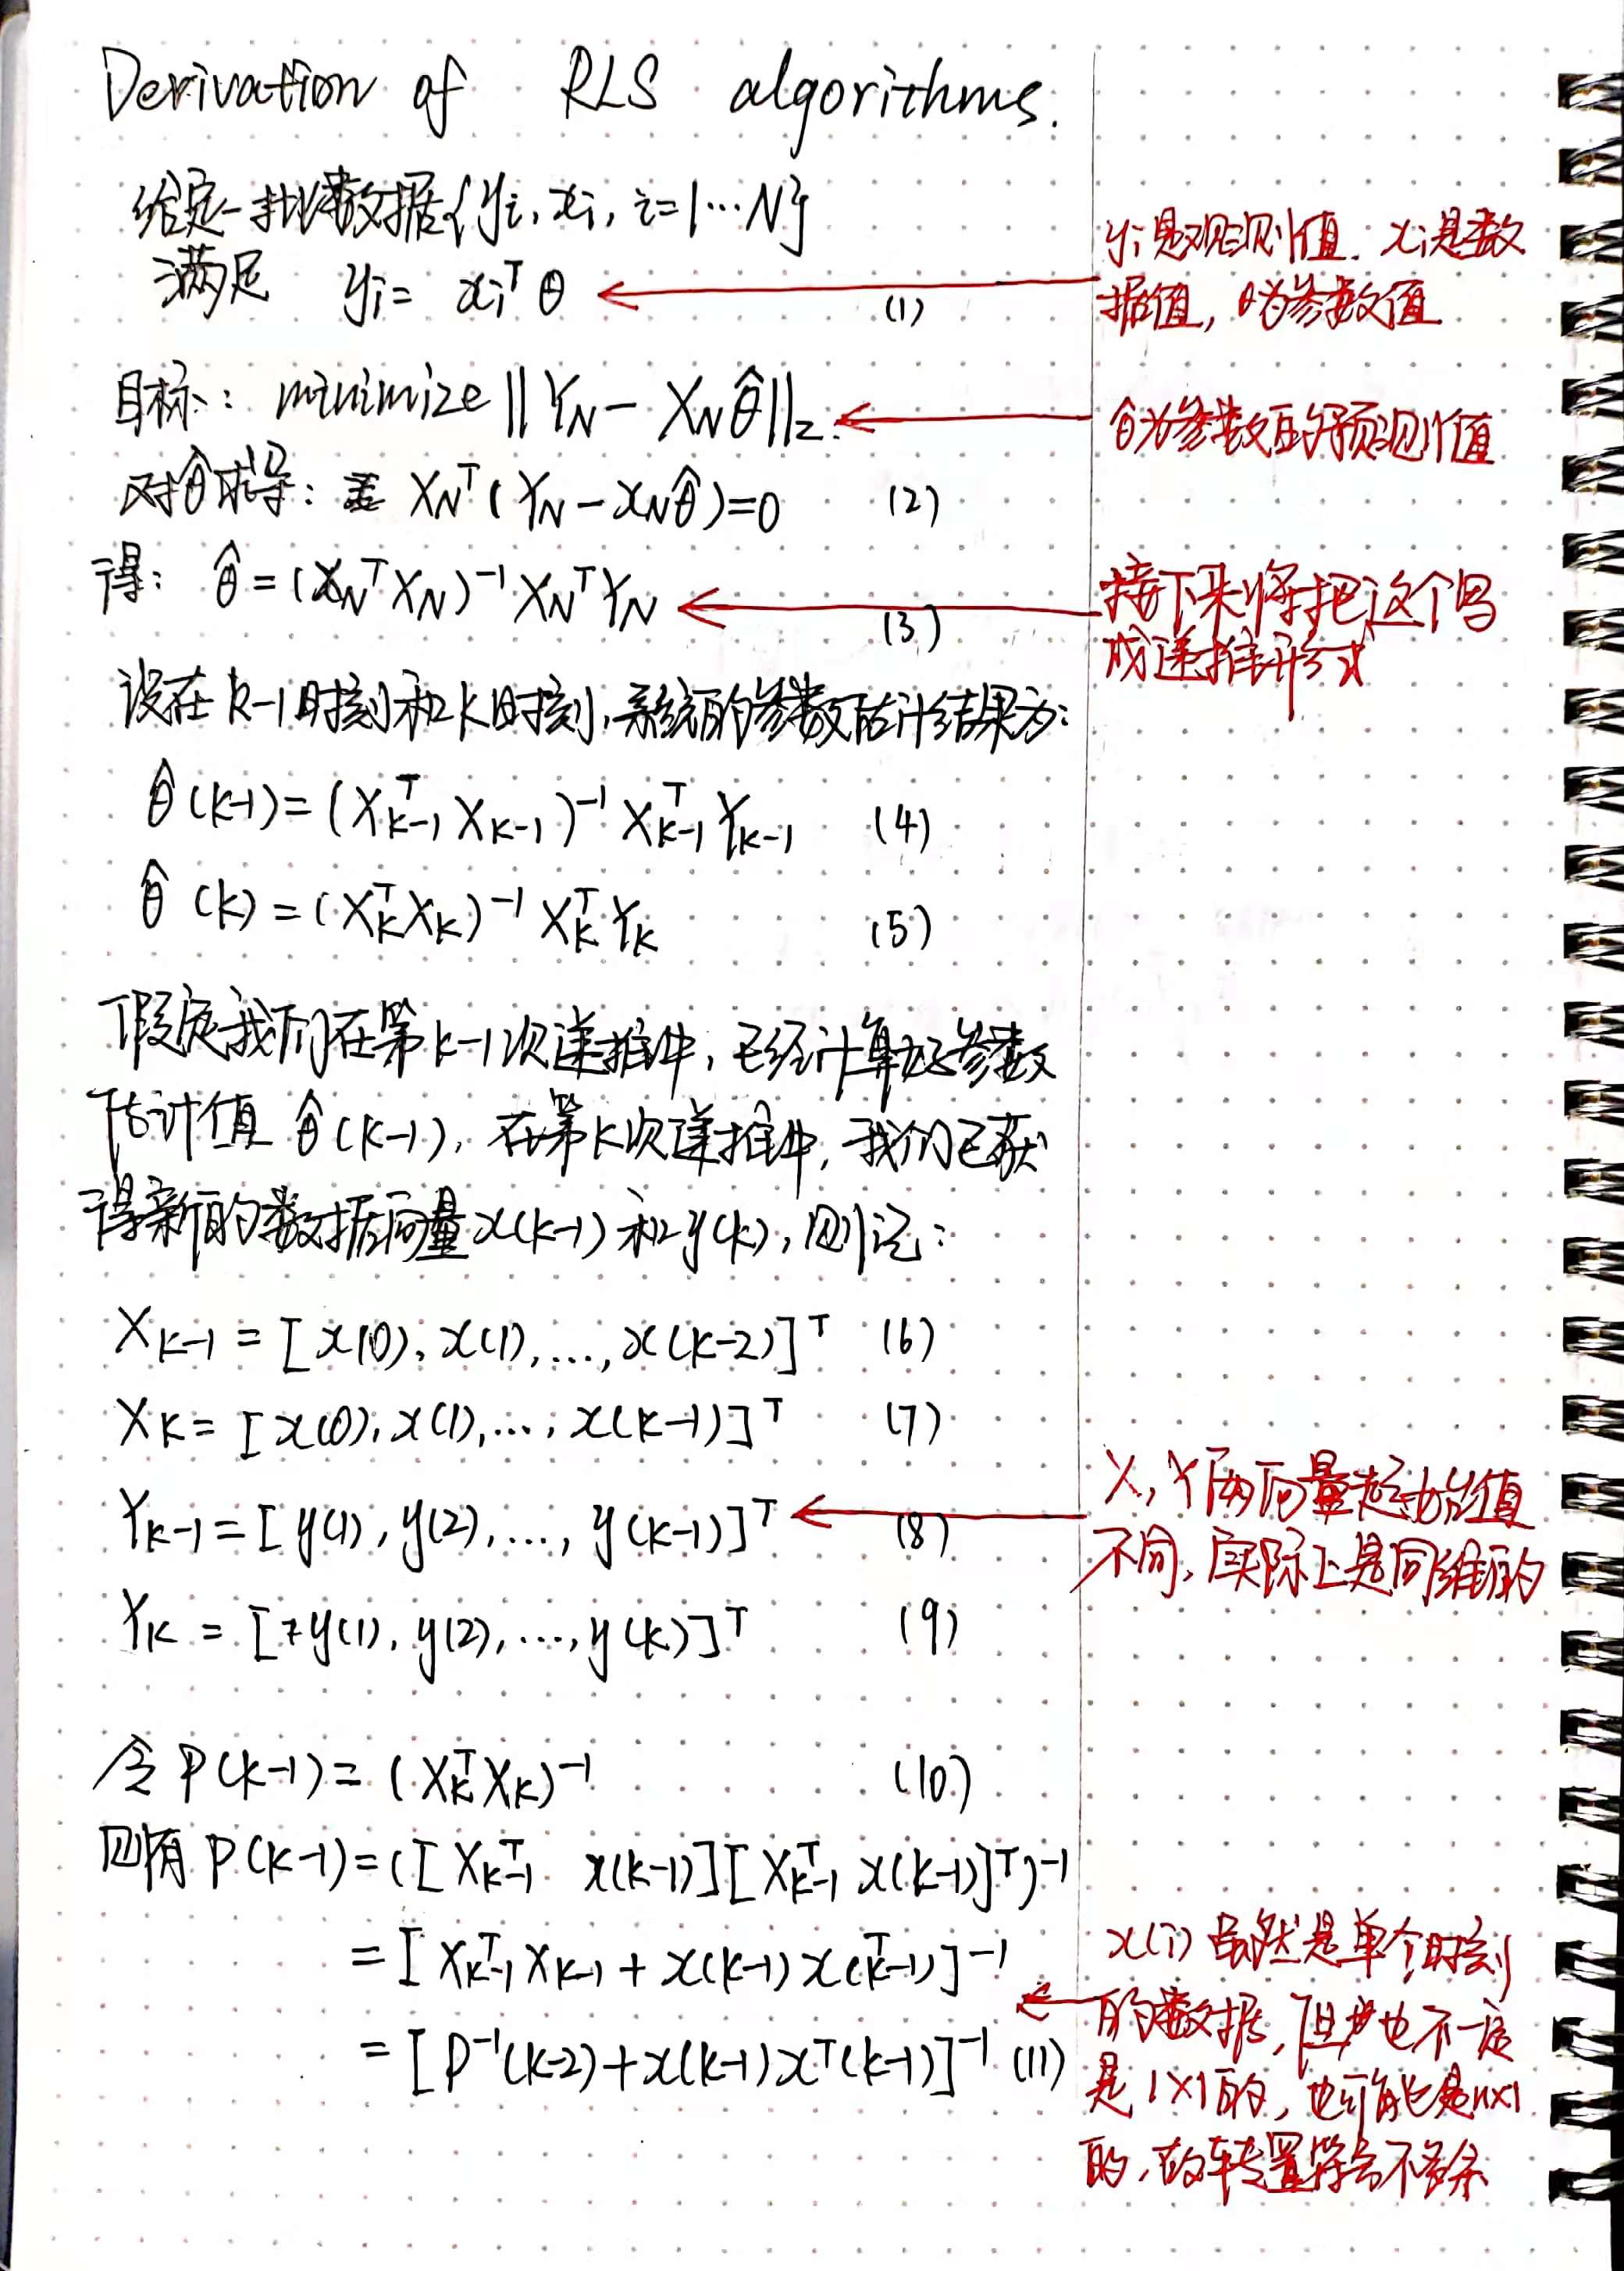 Derivation of RLS algorithms.
给定一批数据{yi, xi, i=1…N}
满足 yi = xiᵀ θ (1)
yi是观测值. xi是数
据值, θ为参数值
目标: minimize ‖Y_N − X_N θ̂‖₂.
θ̂为参数的预测值
对θ̂求导: X_Nᵀ(Y_N − x_N θ̂)=0 (2)
得: θ̂ = (X_Nᵀ X_N)⁻¹ X_Nᵀ Y_N (3)
接下来将把这个写
成递推形式
设在k-1时刻和k时刻,系统的参数估计结果为:
θ̂(k-1) = (X_{k-1}ᵀ X_{k-1})⁻¹ X_{k-1}ᵀ Y_{k-1} (4)
θ̂(k) = (X_kᵀ X_k)⁻¹ X_kᵀ Y_k (5)
假定我们在第k-1次递推中, 已经计算好参数
估计值 θ̂(k-1), 在第k次递推中, 我们已获
得新的数据向量x(k-1)和y(k), 则记:
X_{k-1} = [x(0), x(1), ..., x(k-2)]ᵀ (6)
X_k = [x(0), x(1), ..., x(k-1)]ᵀ (7)
Y_{k-1} = [y(1), y(2), ..., y(k-1)]ᵀ (8)
X, Y两向量起始值
不同, 实际上是同维的
Y_k = [y(1), y(2), ..., y(k)]ᵀ (9)
令 P(k-1) = (X_kᵀ X_k)⁻¹ (10)
则有 P(k-1) = ([X_{k-1}ᵀ x(k-1)][X_{k-1}ᵀ x(k-1)]ᵀ)⁻¹
= [X_{k-1}ᵀ X_{k-1} + x(k-1) x(k-1)ᵀ]⁻¹
= [P⁻¹(k-2) + x(k-1) xᵀ(k-1)]⁻¹ (11)
x(i) 虽然是单个时刻
的数据, 但也不一定
是1×1的, 也可能是n×1
的, 故转置符号不多余